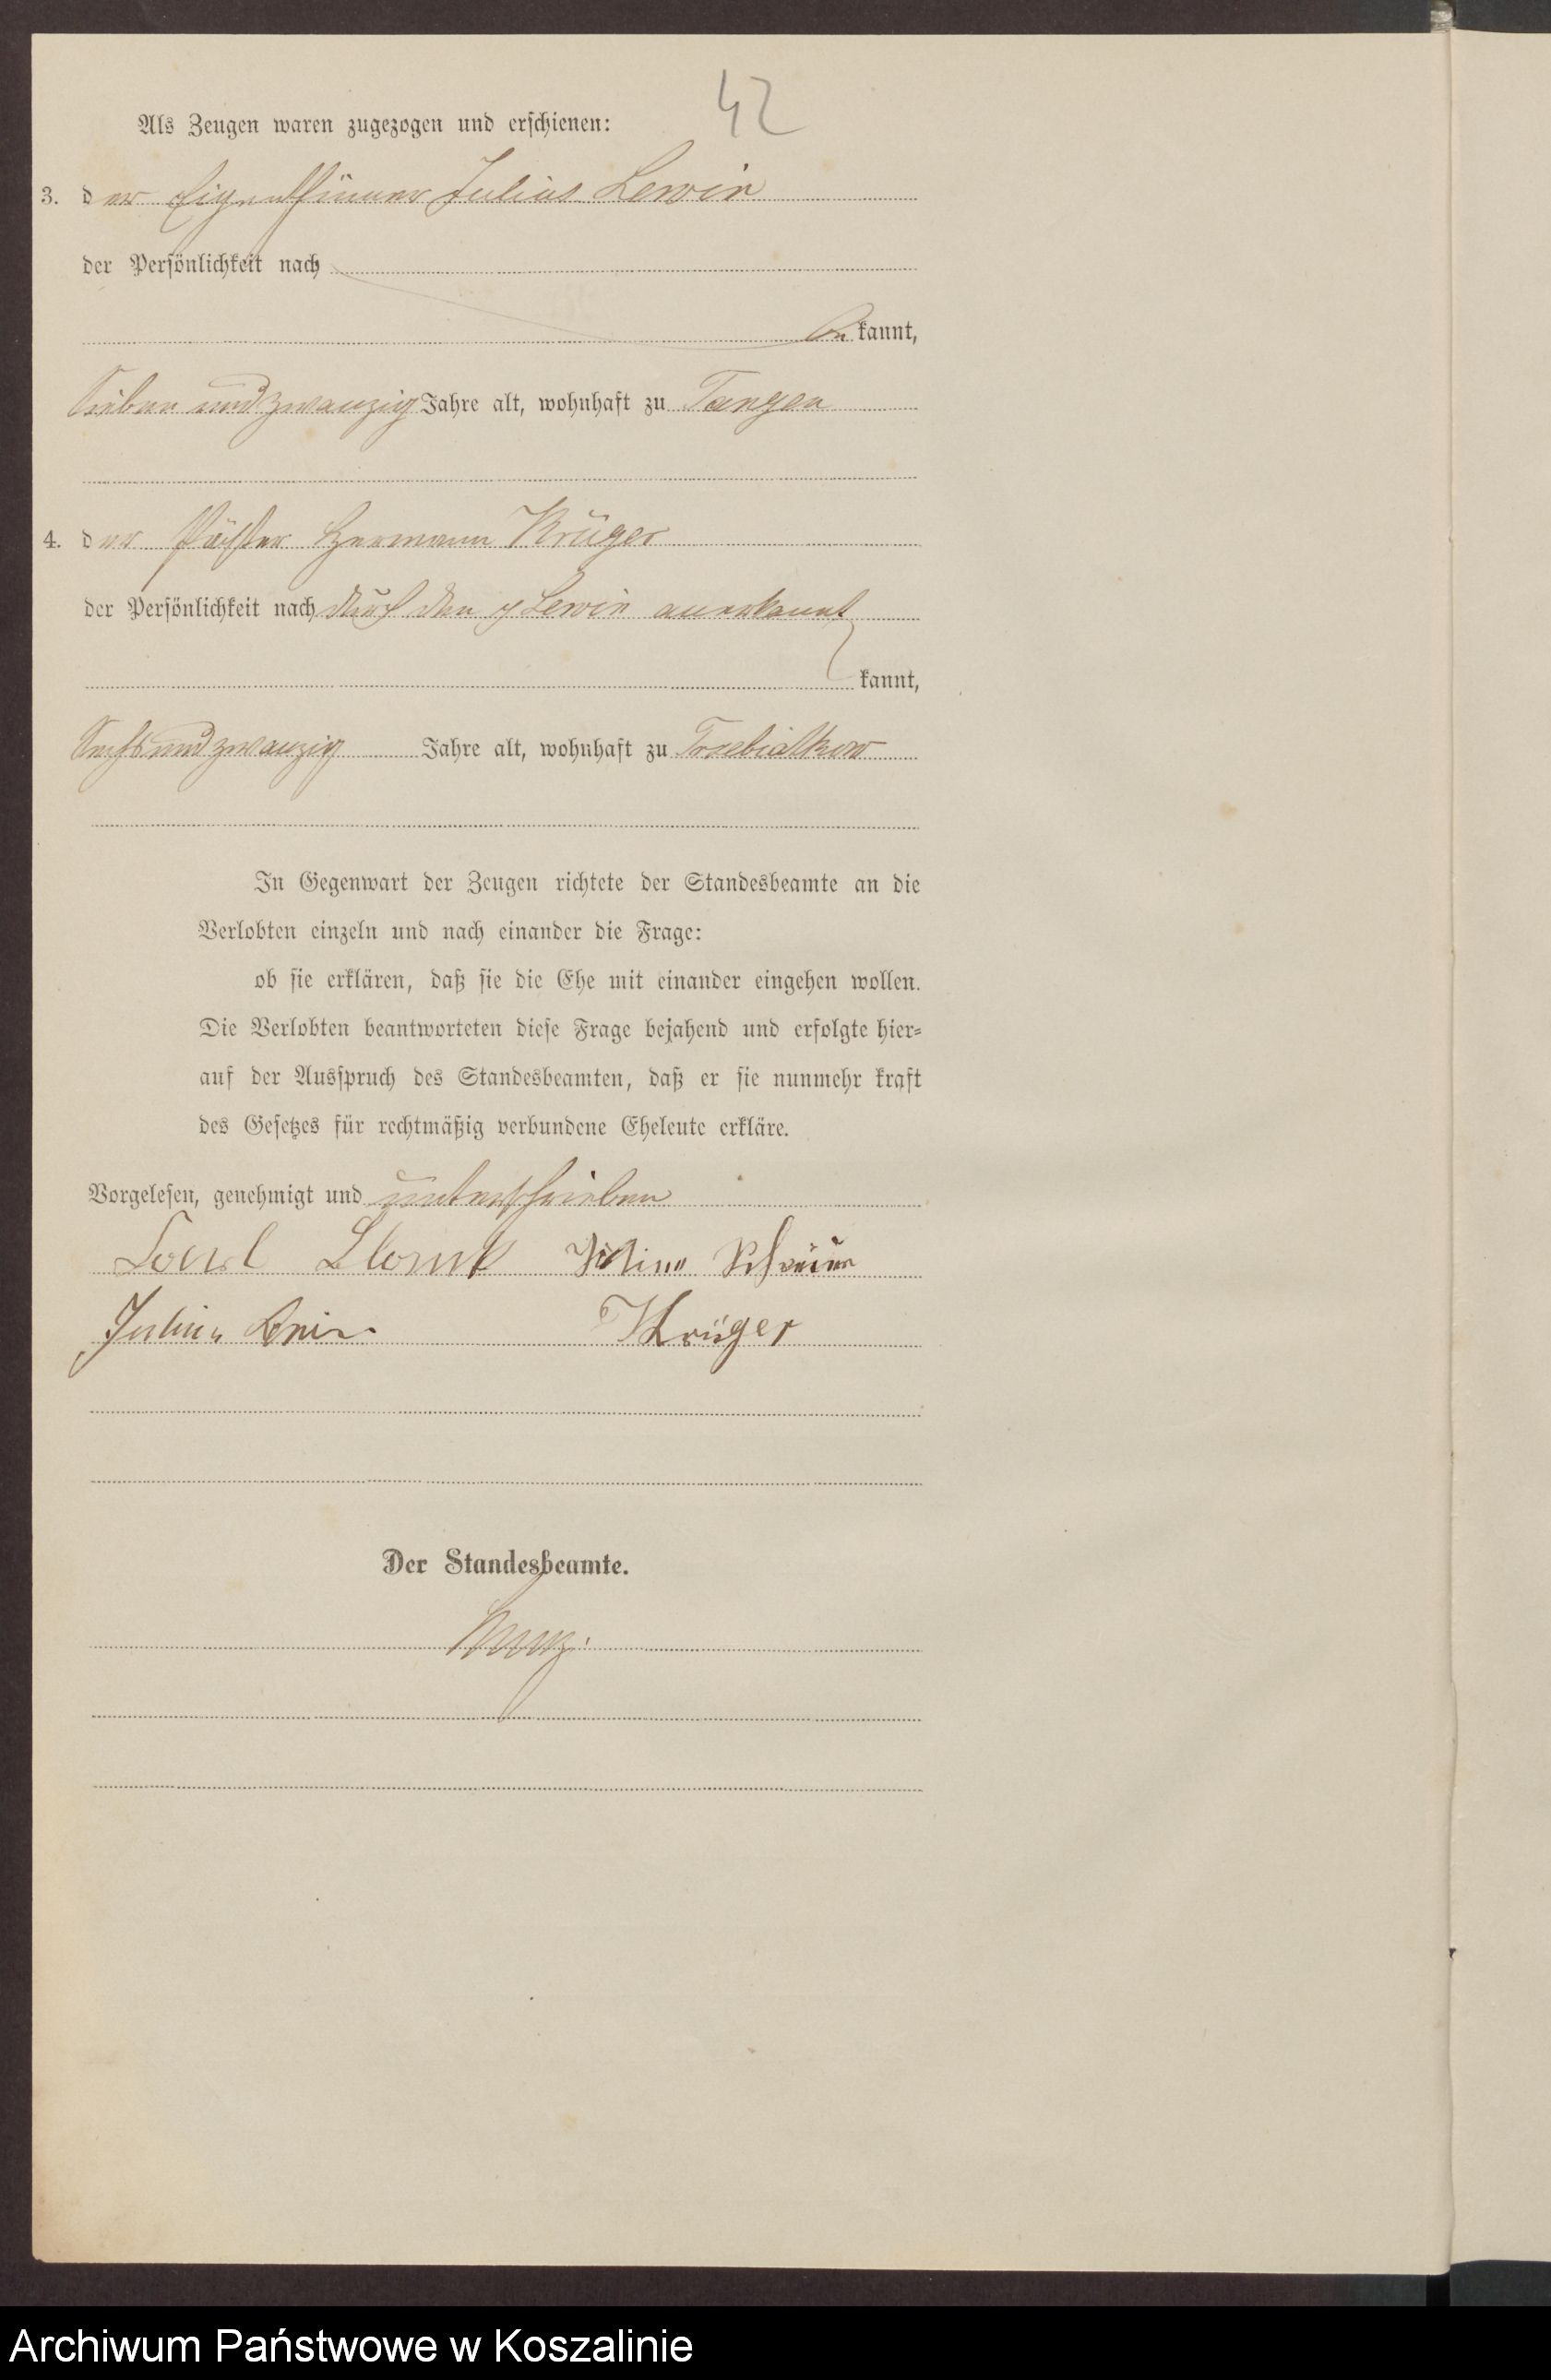 42
Als Zeugen waren zugezogen und erschienen:
3. der Eigenthümer Julius Lewin
der Persönlichkeit nach
bekannt,
Sieben und zwanzig Jahre alt, wohnhaft zu Tangen
4. der Pächter Hermann Krüger
der Persönlichkeit nach durch den p Lewin anerkannt
kannt,
Sechs und zwanzig Jahre alt, wohnhaft zu Trzebiatkow
In Gegenwart der Zeugen richtete der Standesbeamte an die
Verlobten einzeln und nach einander die Frage:
ob sie erklären, daß sie die Ehe mit einander eingehen wollen.
Die Verlobten beantworteten diese Frage bejahend und erfolgte hier-
auf der Ausspruch des Standesbeamten, daß er sie nunmehr kraft
des Gesetzes für rechtmäßig verbundene Eheleute erkläre.
Vorgelesen, genehmigt und unterschrieben
Carl
Julius Krüger
Der Standesbeamte.
Archiwum Państwowe w Koszalinie